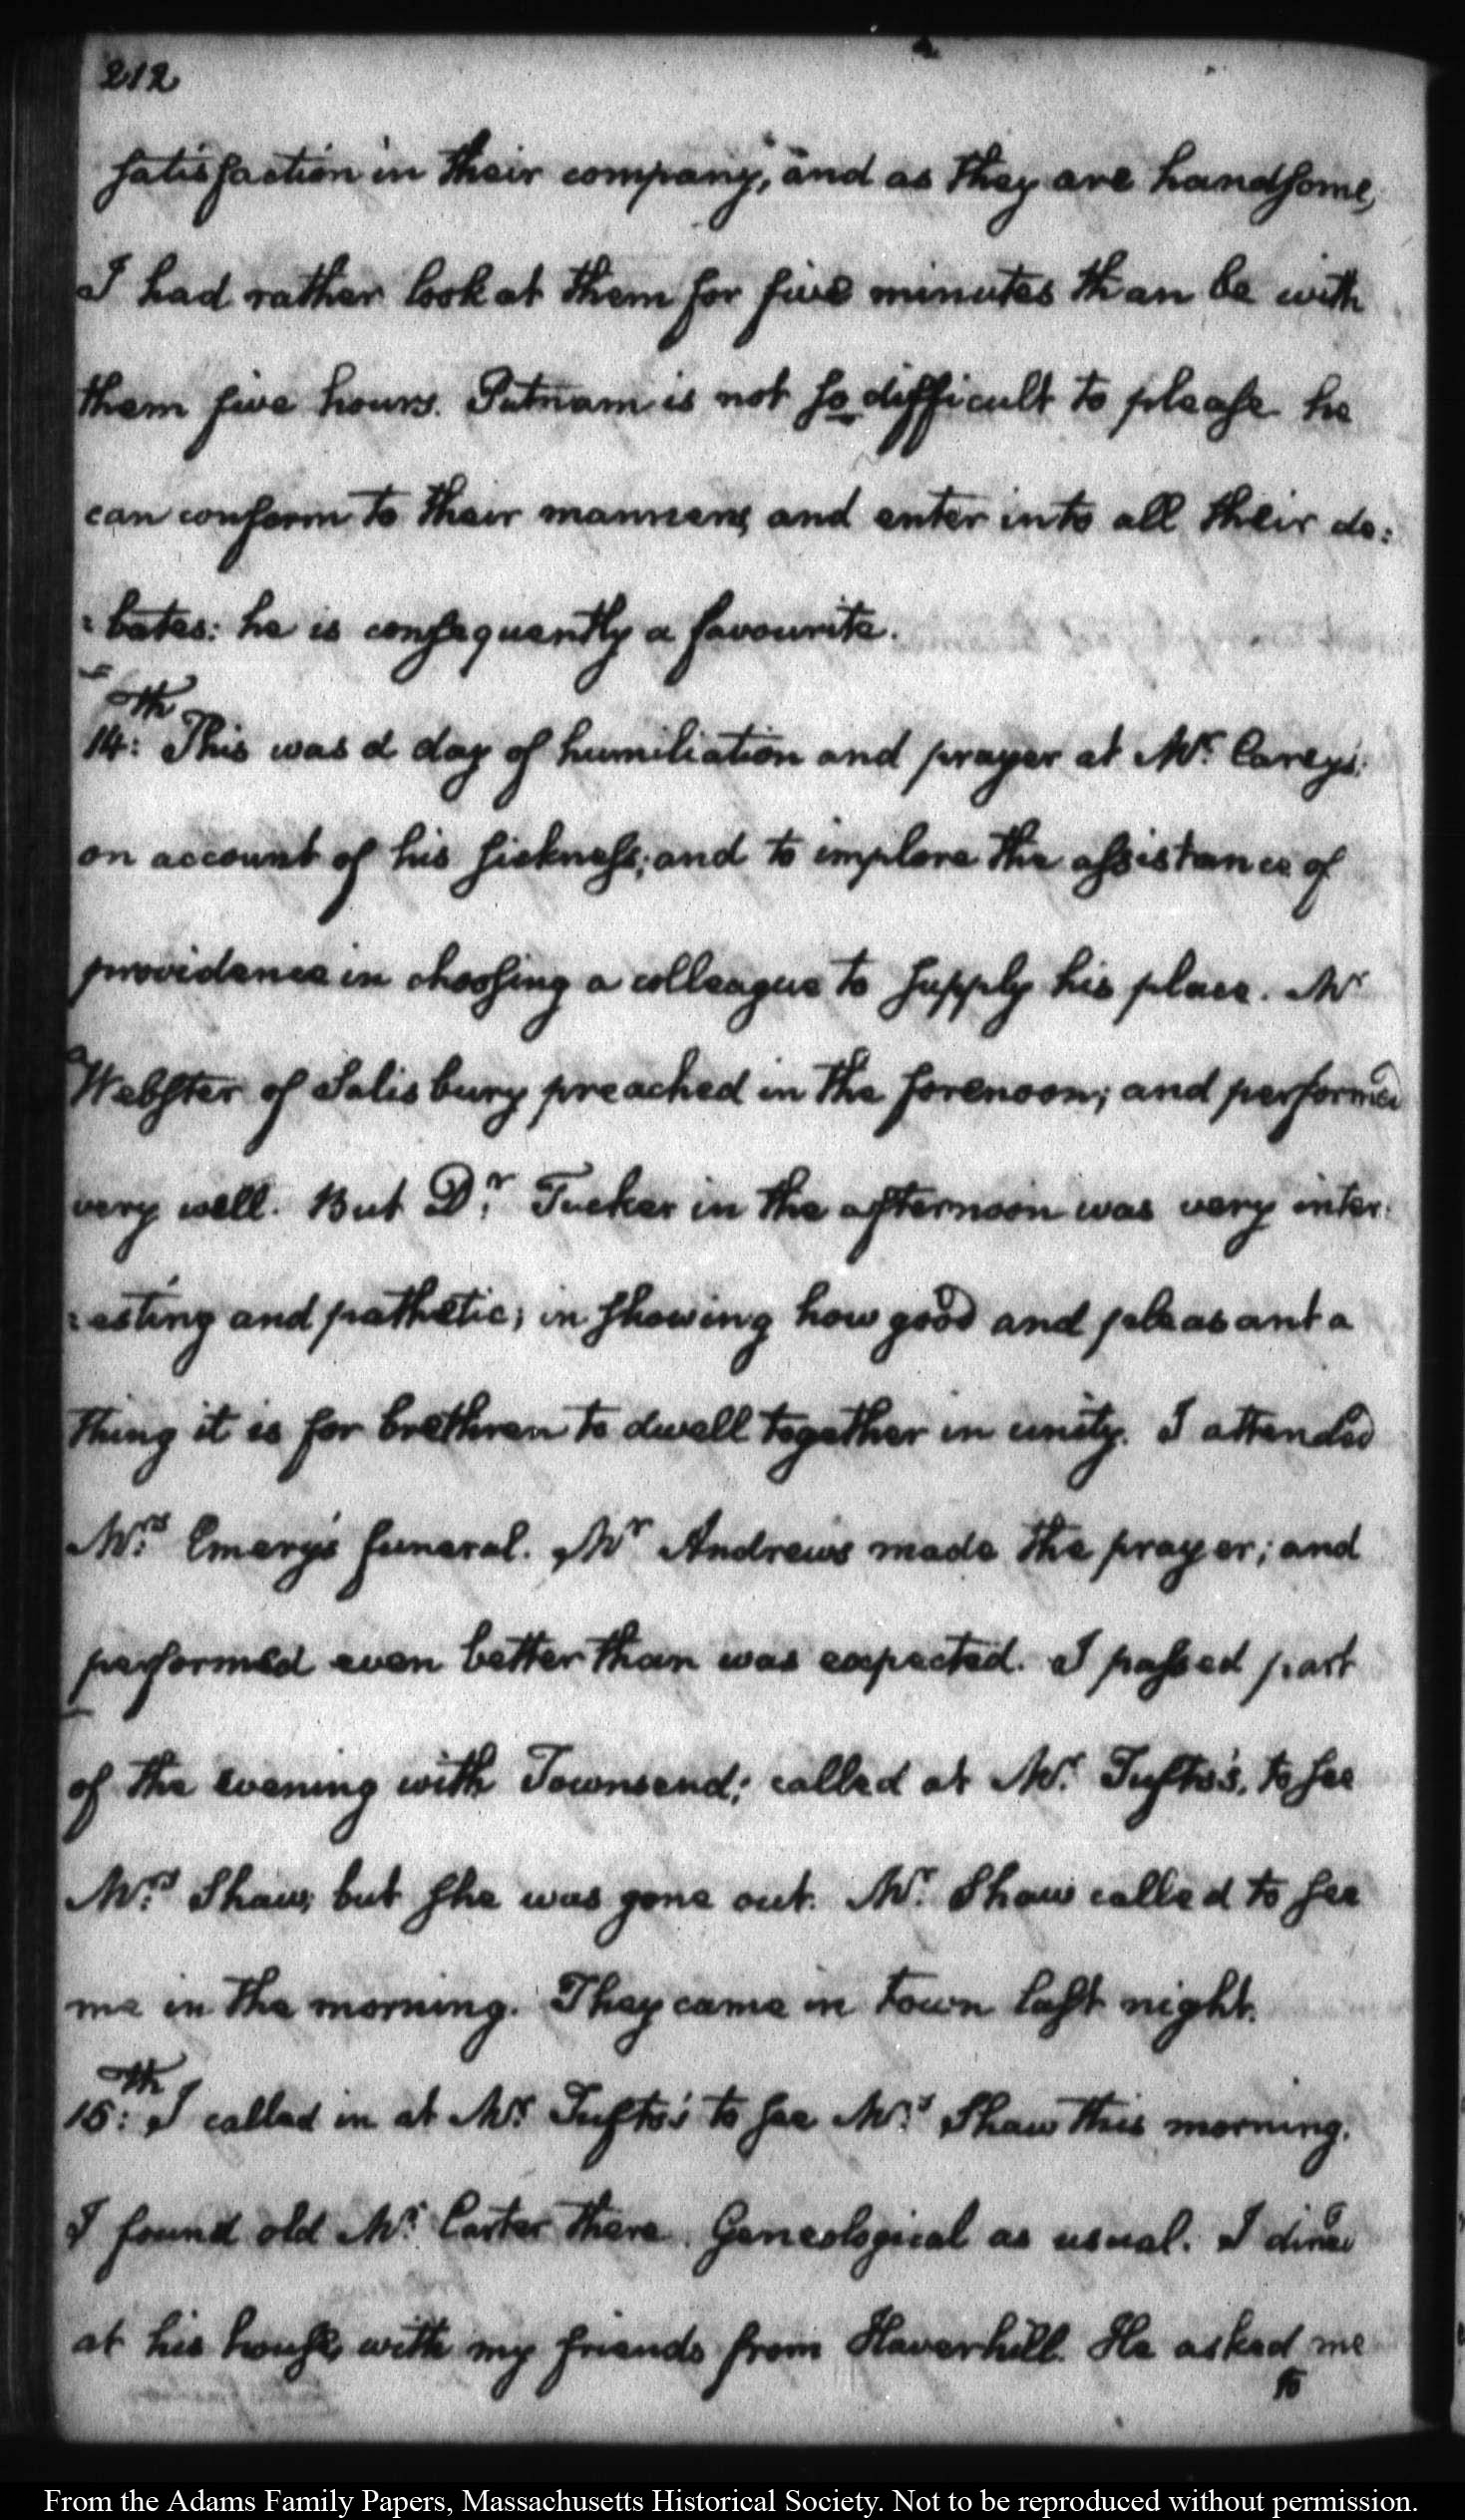 212
satisfaction in their company, and as they are handsome,
I had rather look at them for five minutes than be with
them five hours. Putnam is not so difficult to please he
can conform to their manners, and enter into all their de:
:bates: he is consequently a favourite.
14:th This was a day of humiliation and prayer at Mr. Carey's.
on account of his sickness; and to implore the assistance of
providence in choosing a colleague to supply his place. Mr
Webster of Salisbury preached in the forenoon; and performed
very well. But Dr. Tucker in the afternoon was very inter:
:esting and pathetic; in showing how good and pleasant a
thing it is for brethren to dwell together in unity. I attended
Mrs. Emery's funeral. Mr Andrews made the prayer; and
performed even better than was expected. I passed part
of the evening with Townsend; called at Mr. Tufts's, to see
Mrs. Shaw, but she was gone out. Mr. Shaw called to see
me in the morning. They came in town last night.
15:th I called in at Mr. Tufts's to see Mrs. Shaw this morning.
I found old Mr. Carter there. Geneological as usual. I dined
at his house, with my friends from Haverhill. He asked me
to
From the Adams Family Papers, Massachusetts Historical Society. Not to be reproduced without permission.